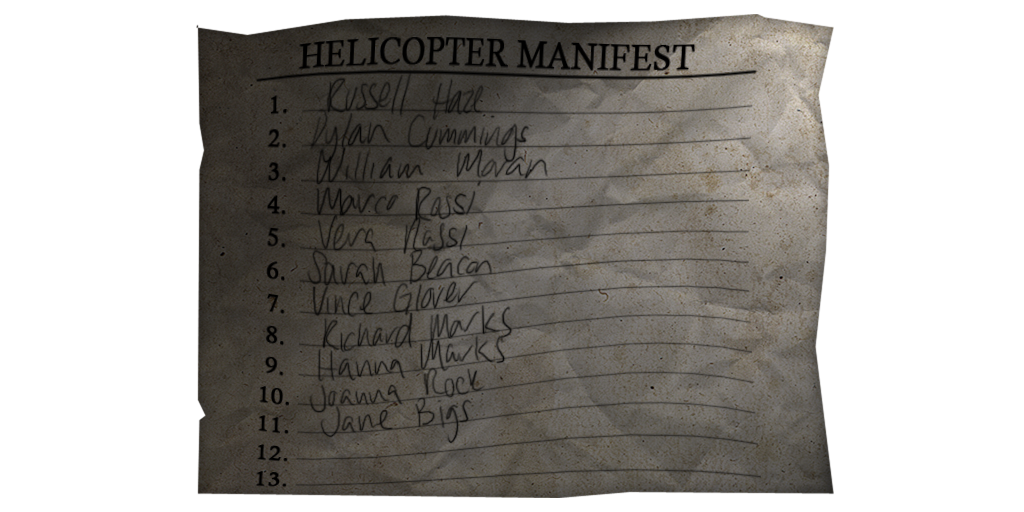 HELICOPTER MANIFEST
1. Russell Haze
2. Dylan Cummings
3. William Moran
4. Marco Rossi
5. Vera Rossi
6. Sarah Beacon
7. Vince Glover
8. Richard Marks
9. Hanna Marks
10. Joanna Rock
11. Jane Bigs
12.
13.